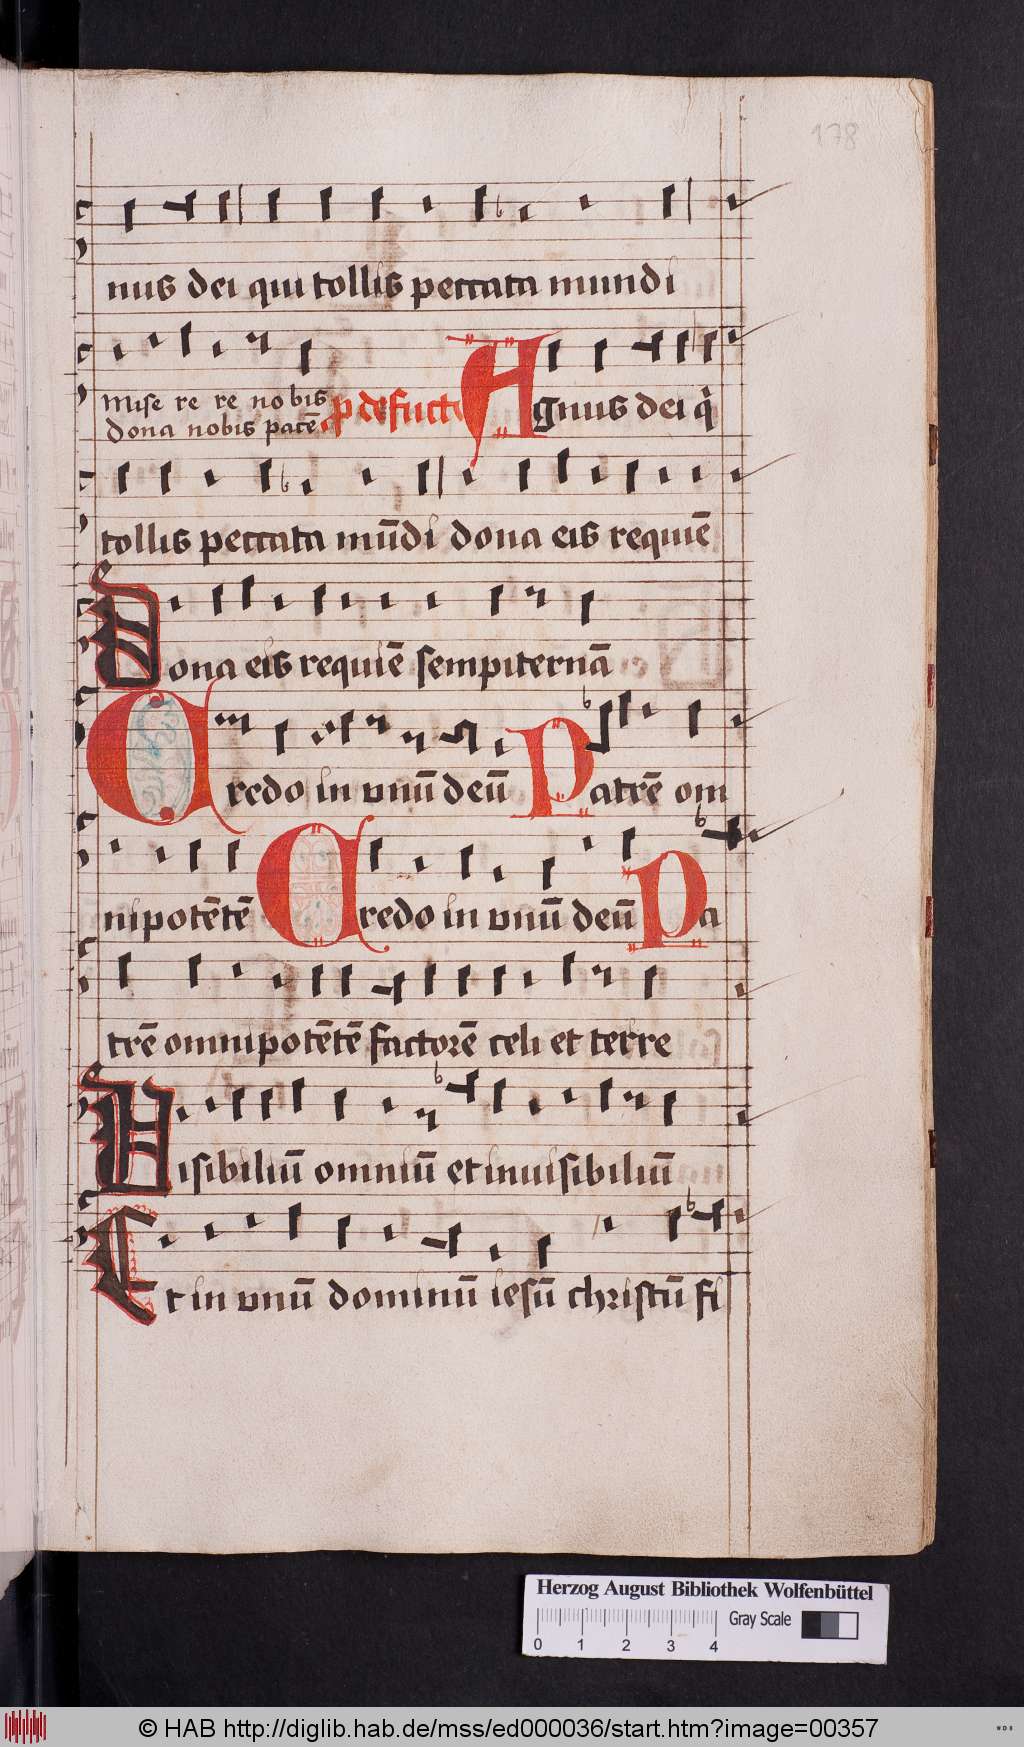 178
nus dei qui tollis peccata mundi
Mise re re nobis
dona nobis pacē
Agnus dei q
tollis peccata mūdi dona eis requiē
Dona eis requiē sempiternā
Credo in vnū deū Patrē om
nipotētē Credo in vnū deū Pa
trē omnipotētē factorē celi et terre
Visibiliū omniū et inuisibiliū
Et in vnū dominū iesū christū fi
Herzog August Bibliothek Wolfenbüttel
Gray Scale
0 1 2 3 4
© HAB http://diglib.hab.de/mss/ed000036/start.htm?image=00357